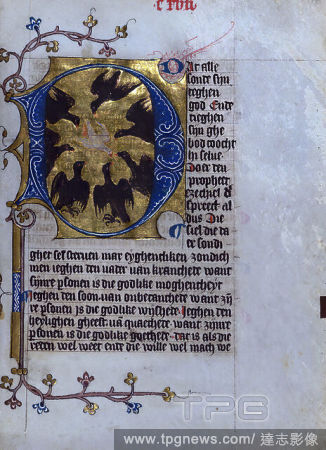 c xviii
Ar alle
sonde syn
teghen
god Ende
teghen
syn ghe
bod
Doer den
prophete
ezechiel
spreect al
dus Die
siel die da
te sondi
ghet sel steruen mar eyghentliken
men ieghen den vader van want
syure psonen is die godlike moghentheyt
Ieghen den soen van onbecantheit want
re psonen is die godlike wijsheit Ieghen den
heylighen gheest van quaetheit want synre
psonen is die godlike goetheit dat is als die
reden wel weet ende die wille wel mach we
TPG
www.tpgnews.com/達志影像